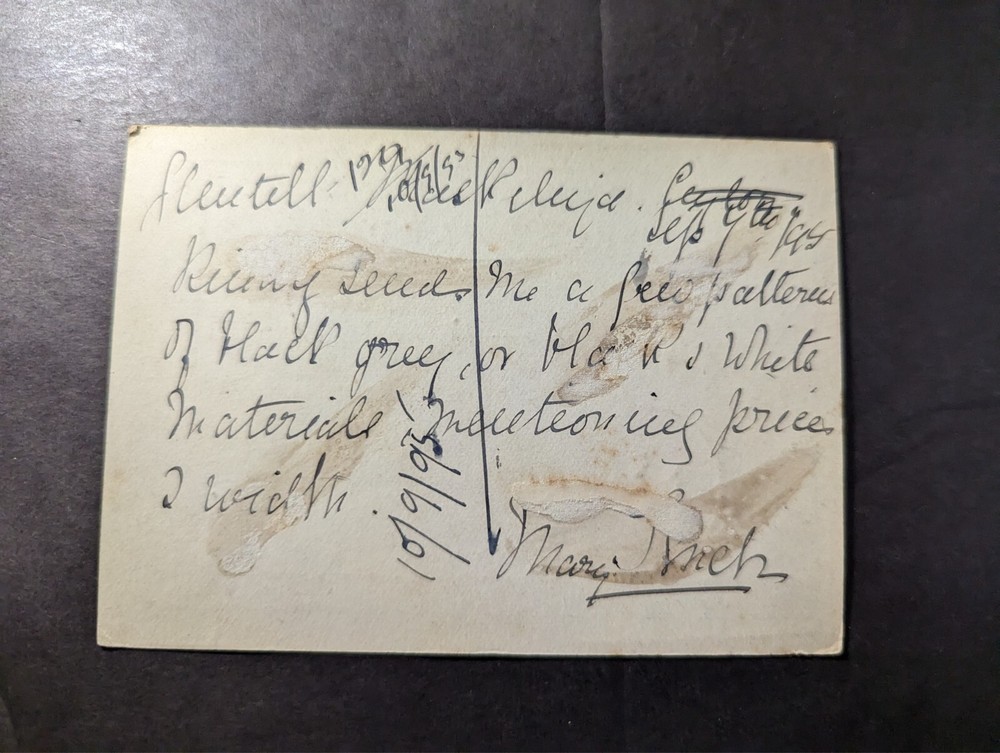 Glentilt Maskeliya. Ceylon
Sep 7th /95
Kindly send me a few patterns
of black grey, or black & white
materials mentioning prices
& width.
10/9/95
Mary Finch